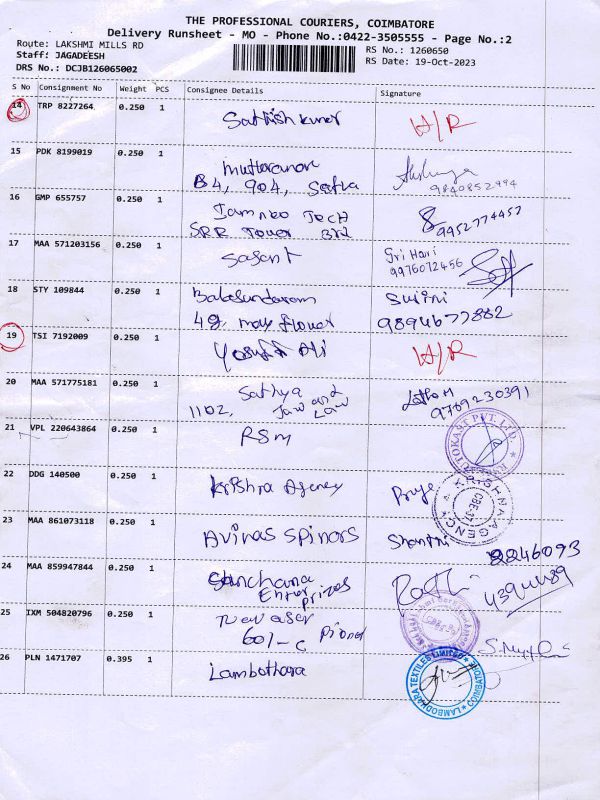 THE PROFESSIONAL COURIERS, COIMBATORE
Delivery Runsheet - MO - Phone No.:0422-3505555 - Page No.:2
Route: LAKSHMI MILLS RD
RS No.: 1260650
Staff: JAGADEESH
RS Date: 19-Oct-2023
DRS No.: DCJB126065002
S No Consignment No Weight PCS Consignee Details Signature
14 TRP 8227264 0.250 1
Sathish kumar H/R
15 PDK 8199019 0.250 1
B4, 904,
9840852994
16 GMP 655757 0.250 1
Tech
SRR Tower 3rd 9952774457
17 MAA 571203156 0.250 1
Sri Hari
9976072456
18 STY 109844 0.250 1
Balasundaram
4g, may flower 9894677882
19 TSI 7192009 0.250 1
Ali H/R
20 MAA 571775181 0.250 1
Sathya
1102, 9789230391
21 VPL 220643864 0.250 1
RSM
22 DDG 140500 0.250 1
Krishna Agency
KRISHNA AGENCY
CBE-37
23 MAA 861073118 0.250 1
Avinas Spinors Shanthi
24 MAA 859947844 0.250 1
Sanchana
Enterprizes
25 IXM 504820796 0.250 1
601-C
26 PLN 1471707 0.395 1
Lambothara
LAMBODHARA TEXTILES LIMITED